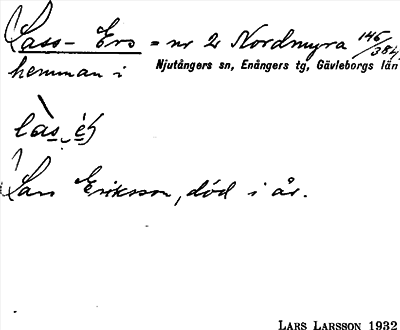 Lass-Ers = nr 2 Nordmyra 146/384,
hemman i Njutångers sn, Enångers tg, Gävleborgs län
Lars Eriksson, död i år.
LARS LARSSON 1932